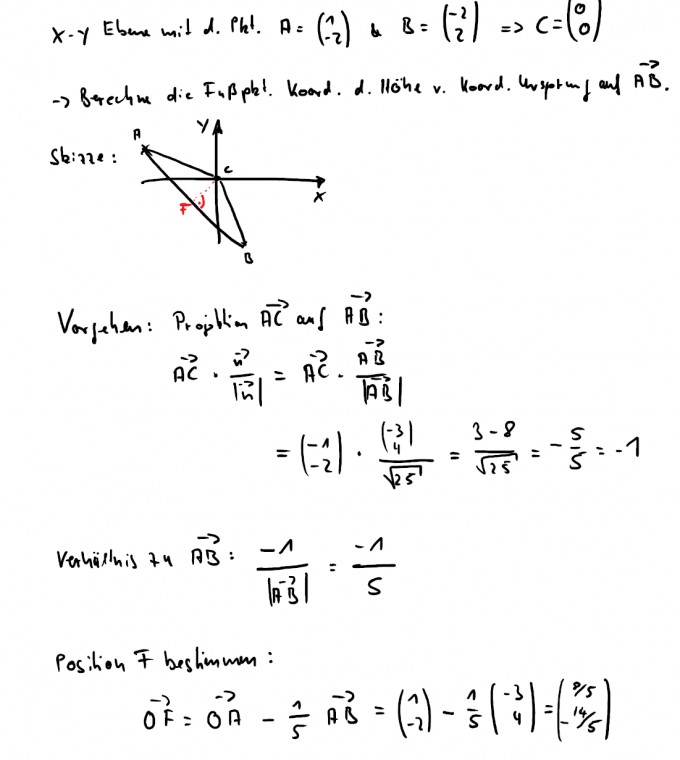 X-Y Ebene mit d. Pkt. A = (1 -2) & B = (-2 2) => C = (0 0)
-> Berechne die Fußpkt. Koord. d. Höhe v. Koord. Ursprung auf AB.
Skizze:
A
Y
C
X
F
B
Vorgehen: Projktion AC auf AB:
AC · n/|n| = AC · AB/|AB|
= (-1 -2) · (-3 4)/√25 = 3-8/√25 = -5/5 = -1
Verhältnis zu AB: -1/|AB| = -1/5
Position F bestimmen:
OF = OA - 1/5 AB = (1 -2) - 1/5 (-3 4) = (8/5 -14/5)